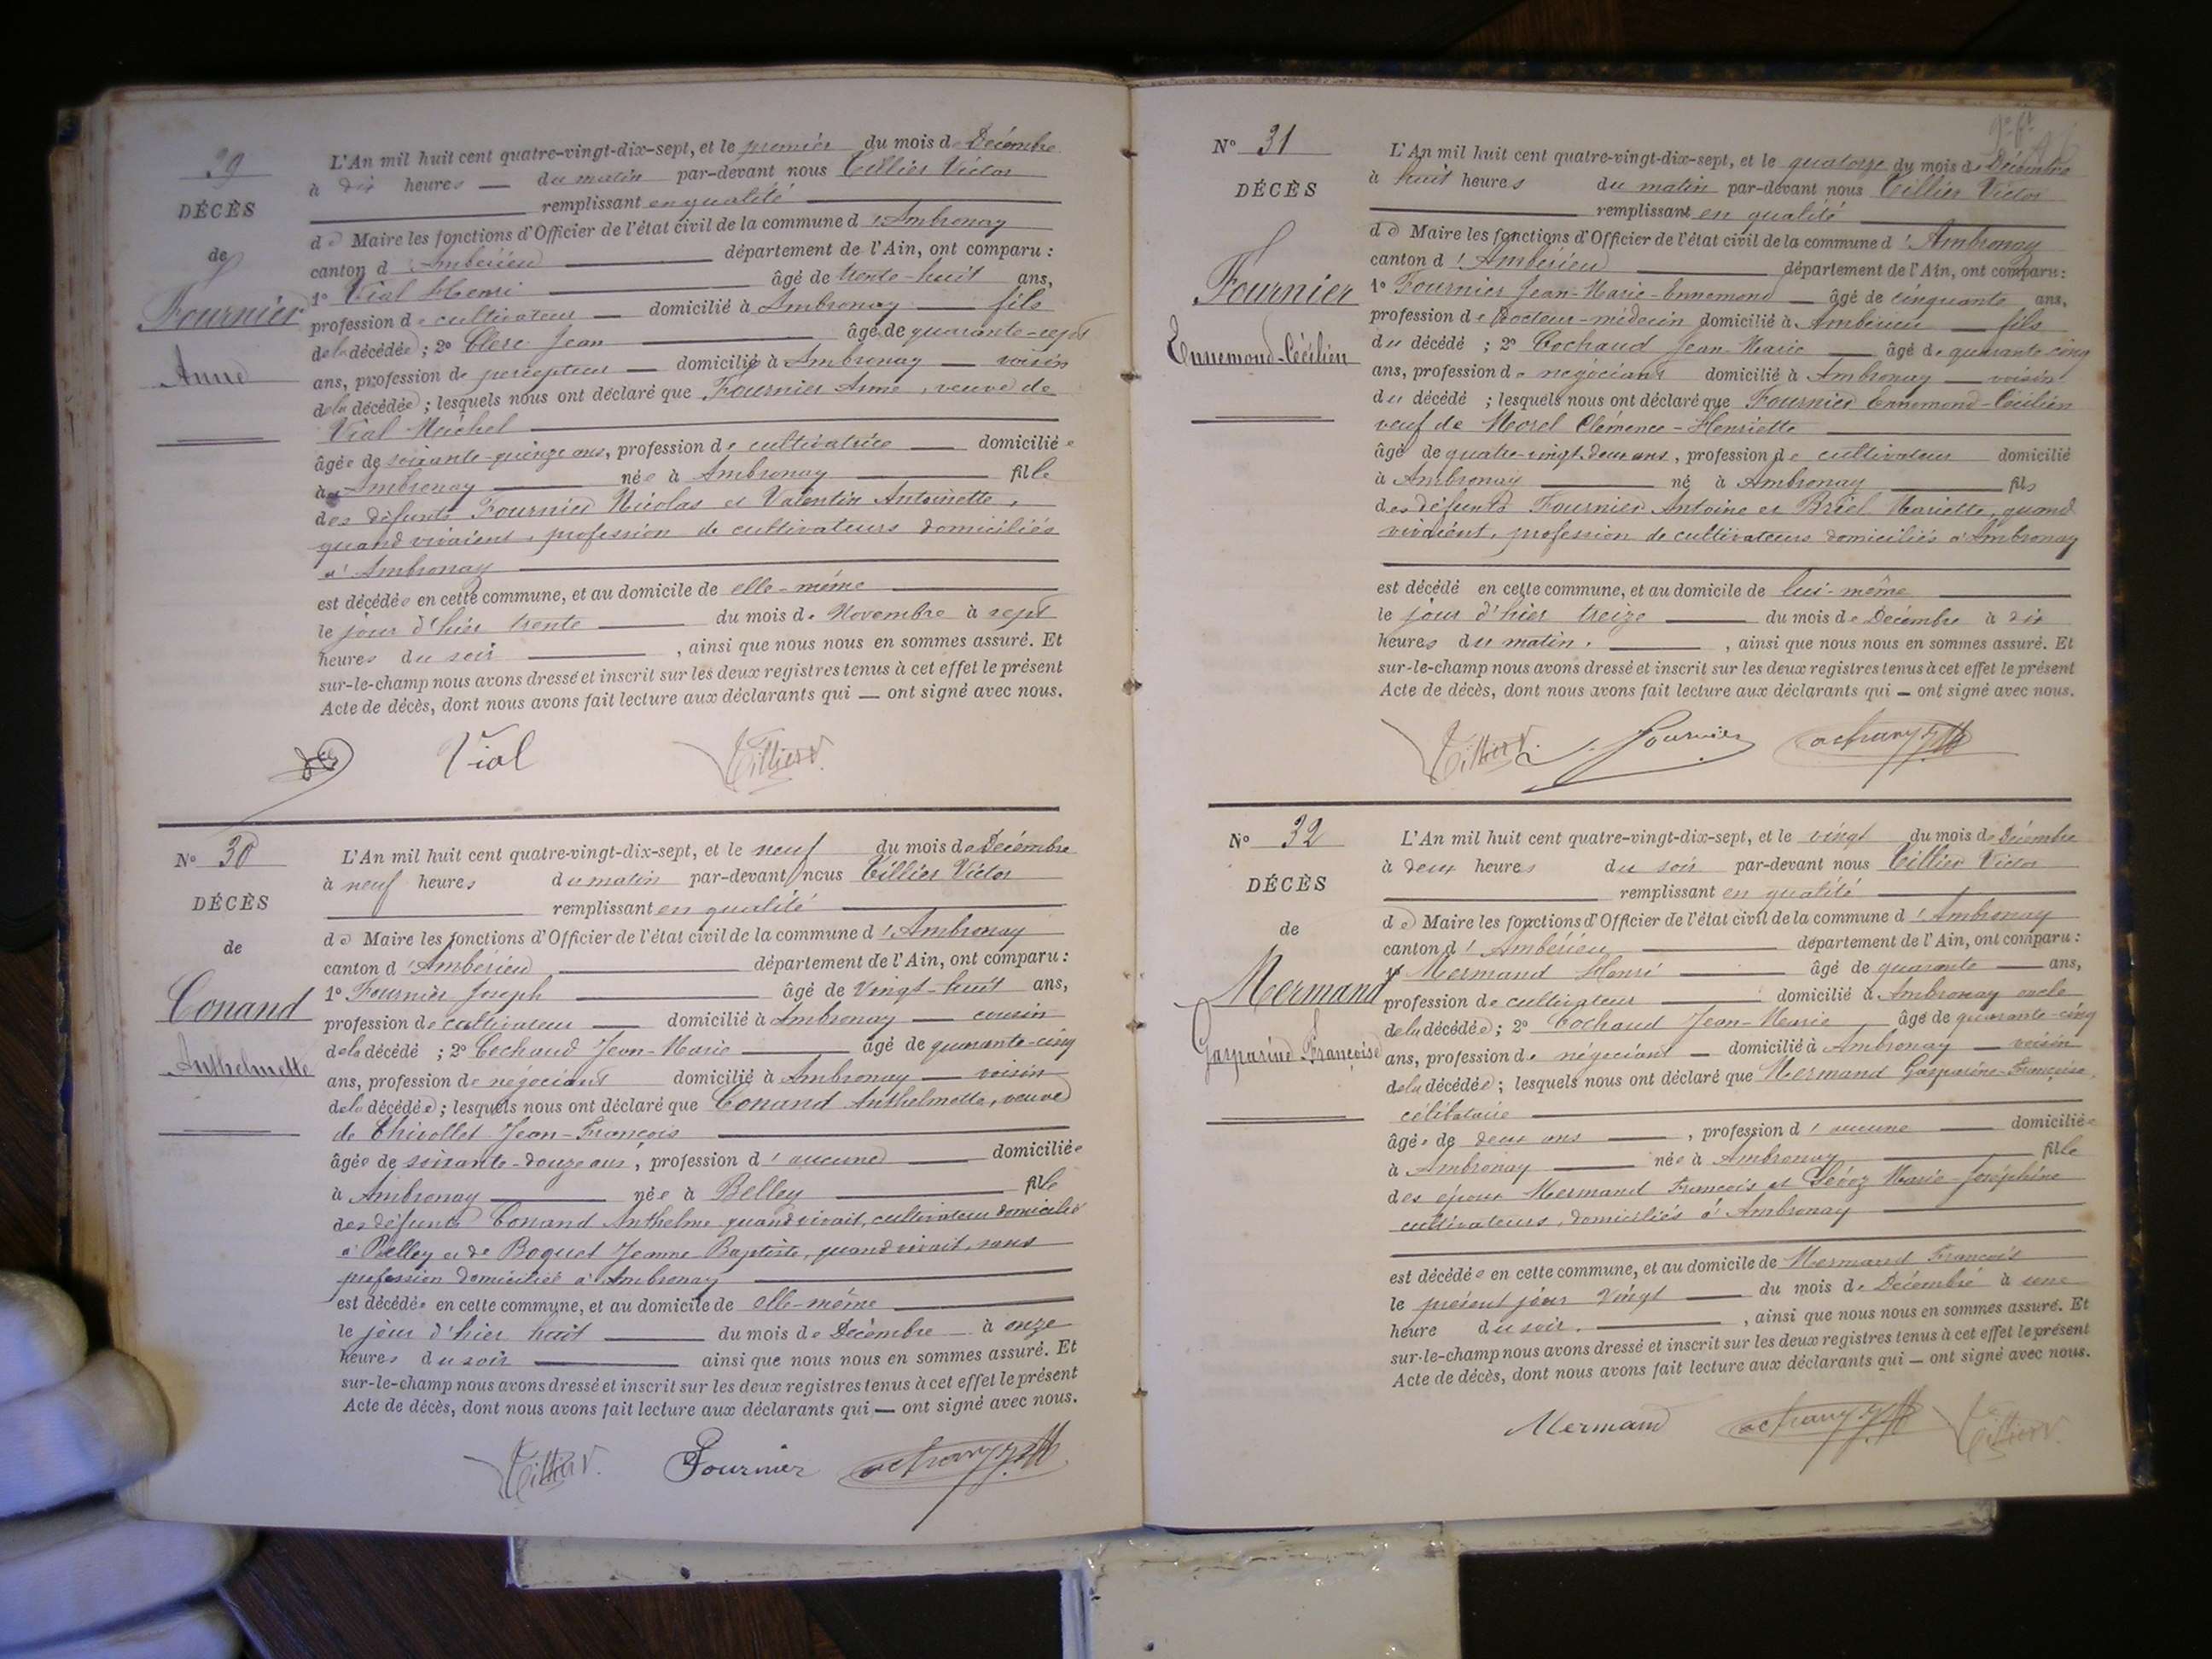 29
DÉCÈS
de
Fournier
Anne
L'An mil huit cent quatre-vingt-dix-sept, et le premier du mois de Décembre
à dix heures — du matin par-devant nous Tillier Victor
remplissant en qualité
de Maire les fonctions d'Officier de l'état civil de la commune d'Ambronay
canton d'Ambérieu département de l'Ain, ont comparu :
1° Vial Henri âgé de trente-huit ans,
profession de cultivateur — domicilié à Ambronay — fils
de la décédée ; 2° Clerc Jean âgé de quarante-sept
ans, profession de percepteur — domicilié à Ambronay — voisin
de la décédée ; lesquels nous ont déclaré que Fournier Anne, veuve de
Vial Michel
âgée de soixante-quinze ans, profession de cultivatrice — domiciliée
à Ambronay — née à Ambronay — fille
des défunts Fournier Nicolas et Valentin Antoinette,
quand vivaient, profession de cultivateurs domiciliés
à Ambronay
est décédée en cette commune, et au domicile de elle-même
le jour d'hier trente — du mois de Novembre à sept
heures du soir — , ainsi que nous nous en sommes assuré. Et
sur-le-champ nous avons dressé et inscrit sur les deux registres tenus à cet effet le présent
Acte de décès, dont nous avons fait lecture aux déclarants qui — ont signé avec nous.
Vial Tillier V.
N° 30
DÉCÈS
de
Conand
Anthelmette
L'An mil huit cent quatre-vingt-dix-sept, et le neuf du mois de Décembre
à neuf heures du matin par-devant nous Tillier Victor
remplissant en qualité
de Maire les fonctions d'Officier de l'état civil de la commune d'Ambronay
canton d'Ambérieu département de l'Ain, ont comparu :
1° Fournier Joseph âgé de vingt-huit ans,
profession de cultivateur — domicilié à Ambronay — cousin
de la décédé ; 2° Cochaud Jean-Marie âgé de quarante-cinq
ans, profession de négociant domicilié à Ambronay — voisin
de la décédée ; lesquels nous ont déclaré que Conand Anthelmette, veuve
de Thivollet Jean-François
âgée de soixante-douze ans, profession d'aucune — domiciliée
à Ambronay — née à Belley — fille
des défunts Conand Anthelme quand vivait, cultivateur domicilié
à Belley et de Boquet Jeanne Baptiste, quand vivait, sans
profession domiciliée à Ambronay
est décédée en cette commune, et au domicile de elle-même
le jour d'hier huit — du mois de Décembre à onze
heures du soir — ainsi que nous nous en sommes assuré. Et
sur-le-champ nous avons dressé et inscrit sur les deux registres tenus à cet effet le présent
Acte de décès, dont nous avons fait lecture aux déclarants qui — ont signé avec nous.
Tillier V. Fournier
N° 31
DÉCÈS
Fournier
Ennemond-Cécilien
L'An mil huit cent quatre-vingt-dix-sept, et le quatorze du mois de Décembre
à huit heures du matin par-devant nous Tillier Victor
remplissant en qualité
de Maire les fonctions d'Officier de l'état civil de la commune d'Ambronay
canton d'Ambérieu département de l'Ain, ont comparu :
1° Fournier Jean-Marie-Ennemond — âgé de cinquante ans,
profession de Docteur-médecin domicilié à Ambérieu — fils
du décédé ; 2° Cochaud Jean-Marie — âgé de quarante cinq
ans, profession de négociant domicilié à Ambronay — voisin
du décédé ; lesquels nous ont déclaré que Fournier Ennemond-Cécilien
veuf de Morel Clémence-Henriette
âgé de quatre-vingt-deux ans, profession de cultivateur domicilié
à Ambronay — né à Ambronay — fils
des défunts Fournier Antoine et Briel Mariette, quand
vivaient, profession de cultivateurs domiciliés à Ambronay
est décédé en cette commune, et au domicile de lui-même
le jour d'hier treize — du mois de Décembre à dix
heures du matin. — , ainsi que nous nous en sommes assuré. Et
sur-le-champ nous avons dressé et inscrit sur les deux registres tenus à cet effet le présent
Acte de décès, dont nous avons fait lecture aux déclarants qui — ont signé avec nous.
Tillier V. Fournier
N° 32
DÉCÈS
de
Mermand
Gasparine Françoise
L'An mil huit cent quatre-vingt-dix-sept, et le vingt du mois de Décembre
à deux heures du soir par-devant nous Tillier Victor
remplissant en qualité
de Maire les fonctions d'Officier de l'état civil de la commune d'Ambronay
canton d'Ambérieu département de l'Ain, ont comparu :
1° Mermand Henri — âgé de quarante — ans,
profession de cultivateur domicilié à Ambronay oncle
de la décédée ; 2° Cochaud Jean-Marie âgé de quarante-cinq
ans, profession de négociant — domicilié à Ambronay — voisin
de la décédée ; lesquels nous ont déclaré que Mermand Gasparine-Françoise,
célibataire
âgée de deux ans — , profession d'aucune — domiciliée
à Ambronay — née à Ambronay — fille
des époux Mermand François et Sévoz Marie-Joséphine
cultivateurs, domiciliés à Ambronay
est décédée en cette commune, et au domicile de Mermand François
le présent jour vingt — du mois de Décembre à une
heure du soir. — , ainsi que nous nous en sommes assuré. Et
sur-le-champ nous avons dressé et inscrit sur les deux registres tenus à cet effet le présent
Acte de décès, dont nous avons fait lecture aux déclarants qui — ont signé avec nous.
Mermand Tillier V.